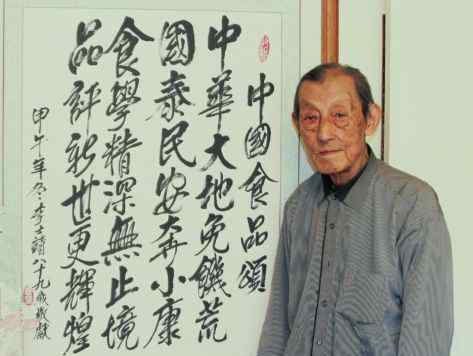 中國食品頌
中華大地免饑荒
國泰民安奔小康
食學精深無止境
品評新世更輝煌
甲午年冬李士靖八十九歲敬獻